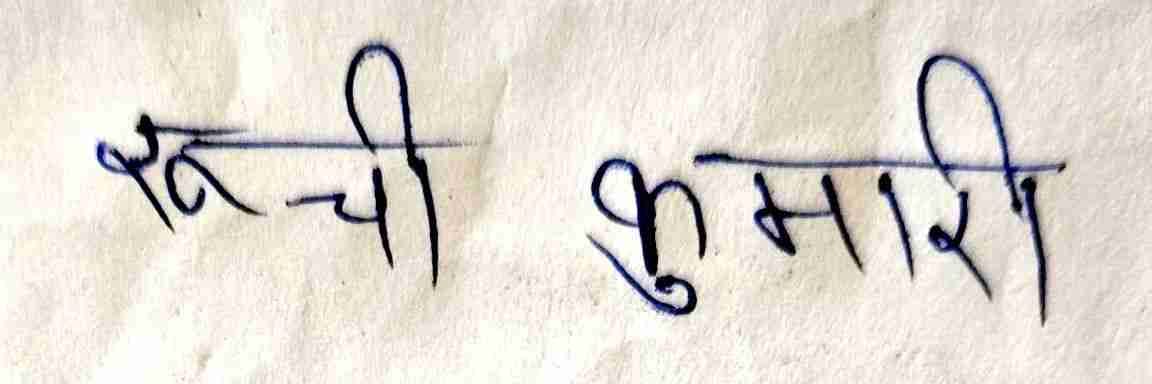 रूची कुमारी